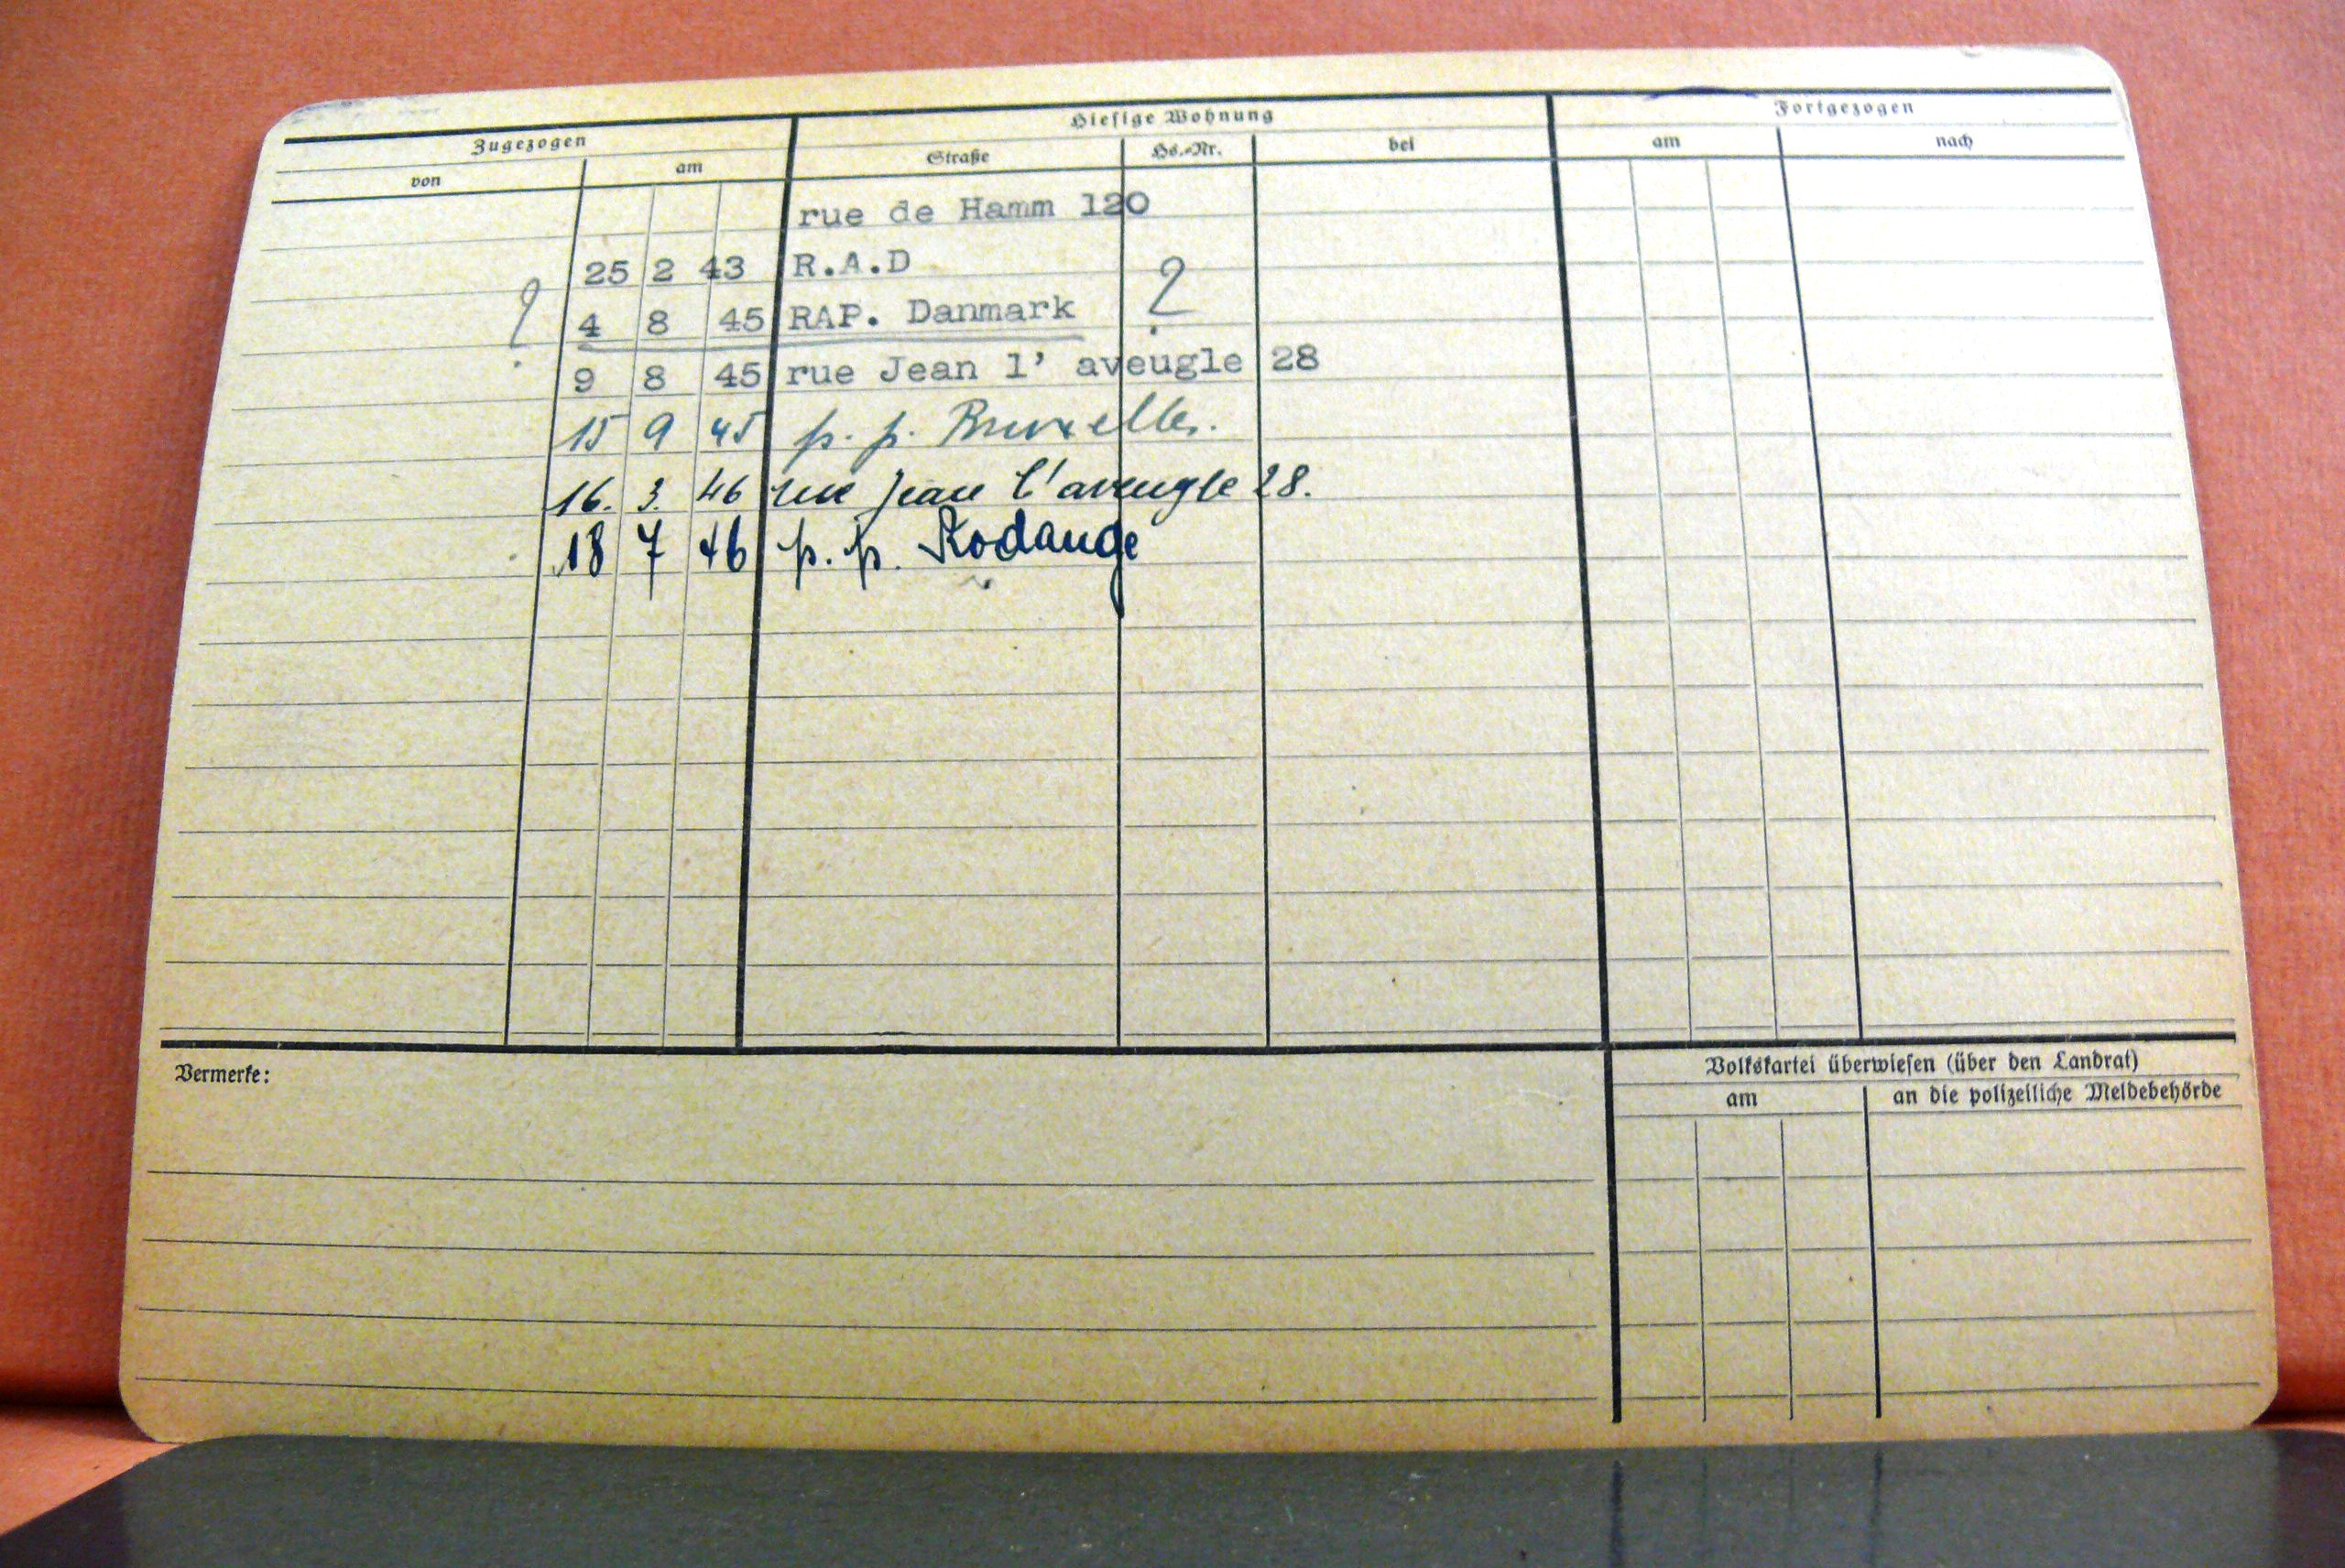 Zugezogen Hiesige Wohnung Fortgezogen
von am Straße Hs.-Nr. bei am nach
rue de Hamm 120
25 2 43 R.A.D
? 4 8 45 RAP. Danmark ?
9 8 45 rue Jean l' aveugle 28
15 9 45 p. p. Bruxelles.
16. 3. 46 rue Jean l'aveugle 28.
18 7 46 p. p. Rodange
Vermerke:
Volkskartei überwiesen (über den Landrat)
am an die polizeiliche Meldebehörde